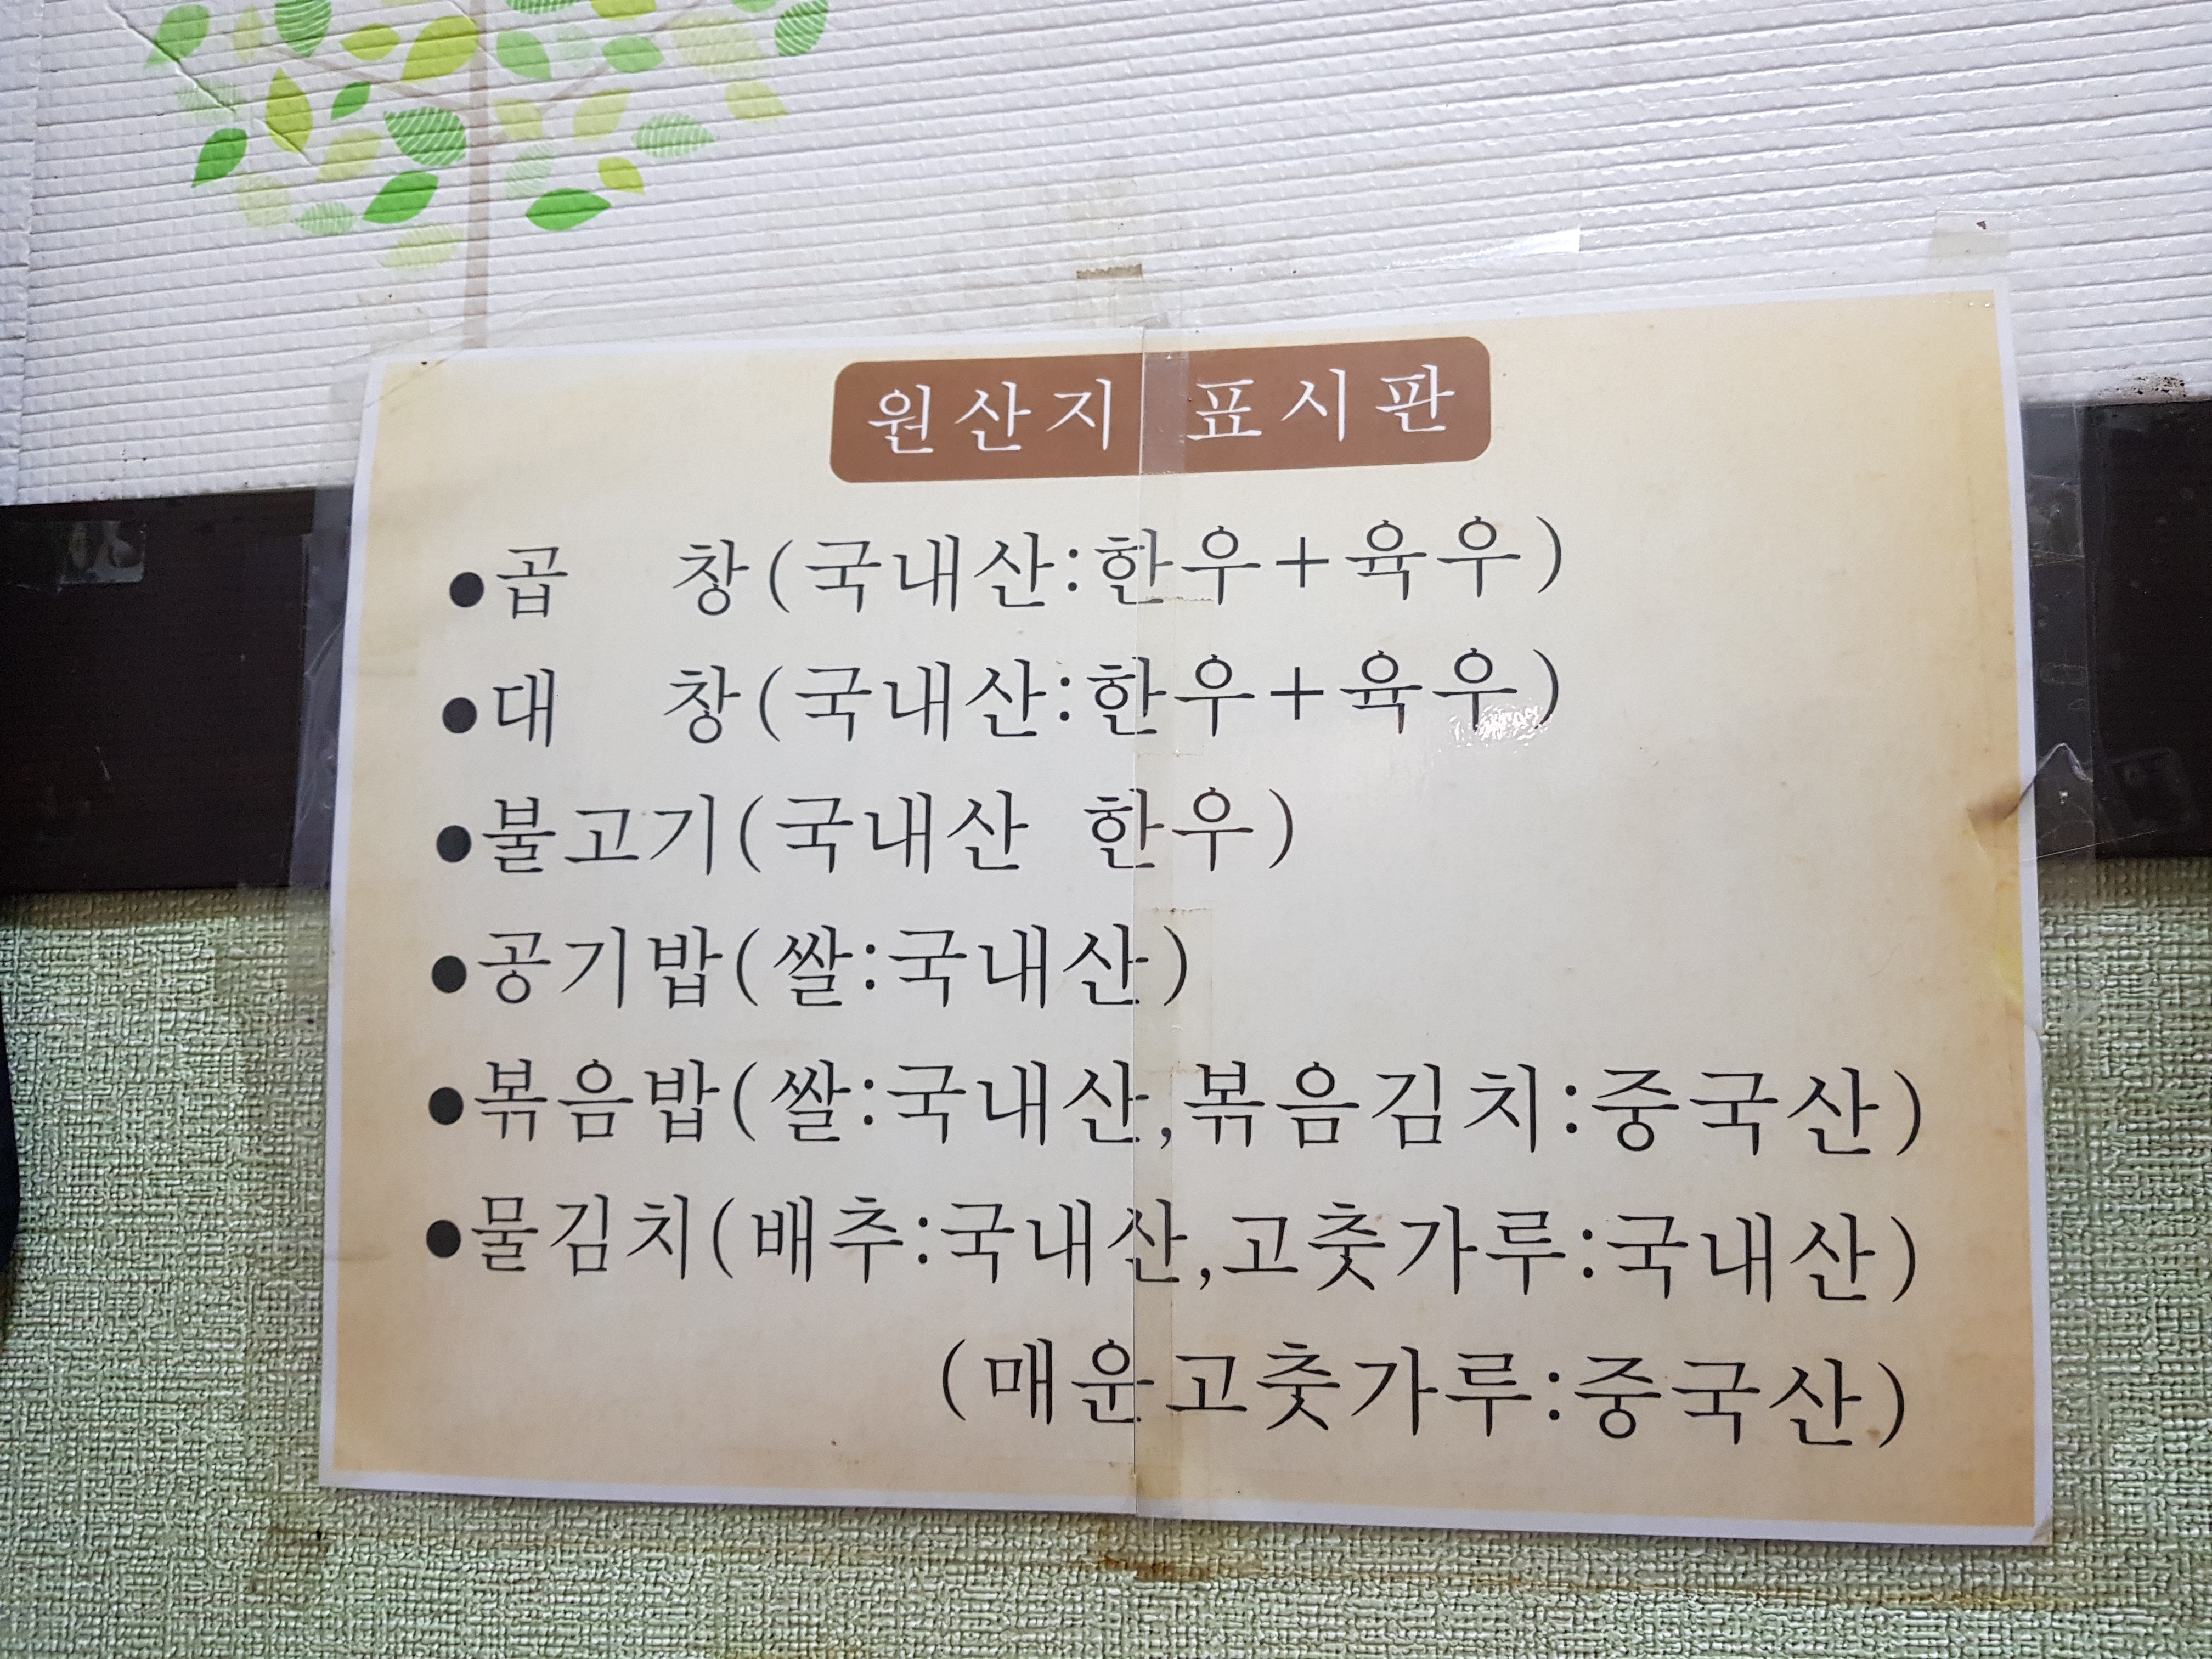 원산지 표시판
●곱 창(국내산:한우+육우)
●대 창(국내산:한우+육우)
●불고기(국내산 한우)
●공기밥(쌀:국내산)
●볶음밥(쌀:국내산,볶음김치:중국산)
●물김치(배추:국내산,고춧가루:국내산)
(매운고춧가루:중국산)